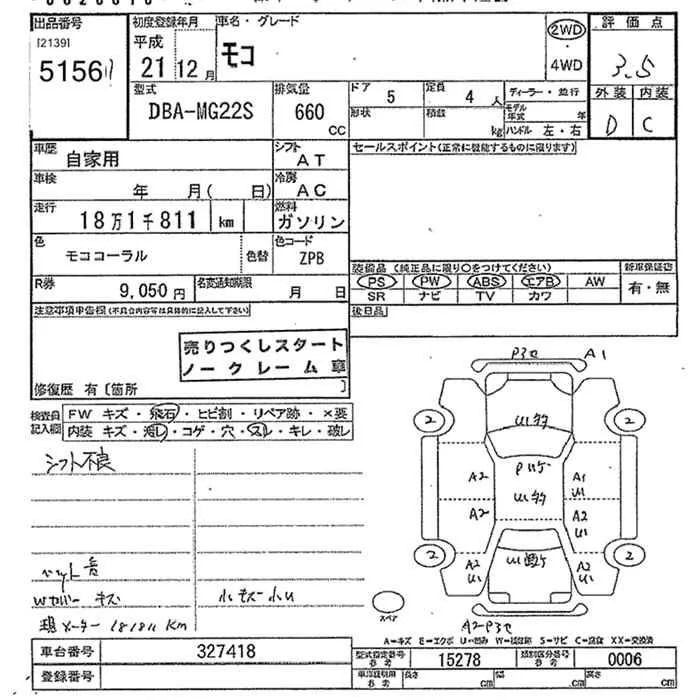 出品番号
[2139]
5156
初度登録年月
平成
21 12 月
車名・グレード
モコ
2WD
・
4WD
評価点
3.5
外装 内装
D C
型式
DBA-MG22S
排気量
660
CC
ドア 5
定員 4 人
形状
積数 kg
ディーラー・並行
モデル年式 年
ハンドル 左・右
車歴 自家用
シフト AT
車検 年 月( 日)
冷房 AC
走行 18万1千811 km
燃料 ガソリン
色 モココーラル 色替
色コード ZPB
R券 9,050 円
名変通知期限 月 日
セールスポイント(正常に機能するものに限ります)
装備品 (純正品に限り○をつけてください)
新車保証書
PS PW ABS エアB AW
SR ナビ TV カワ
有・無
後日品
注意事項申告欄(不具合内容等は具体的に記入して下さい)
売りつくしスタート
ノークレーム車
修復歴 有〔箇所 〕
検査員記入欄
FW キズ・飛石・ヒビ割・リペア跡・×要
内装 キズ・汚レ・コゲ・穴・スレ・キレ・破レ
シフト不良
Wカバー キズ
小キズ 小U
現メーター 181811 Km
A1
2
2
2
2
A2
A2
A1
U1
A2
U1
A2
U1
A2
U1
スペア
A=キズ E=エクボ U=凹み W=補修跡 S=サビ C=腐食 XX=交換済
車台番号 327418
登録番号
型式指定番号 参考 15278
類別区分番号 参考 0006
車検証引用 参考 長さ cm 幅 cm 高さ cm